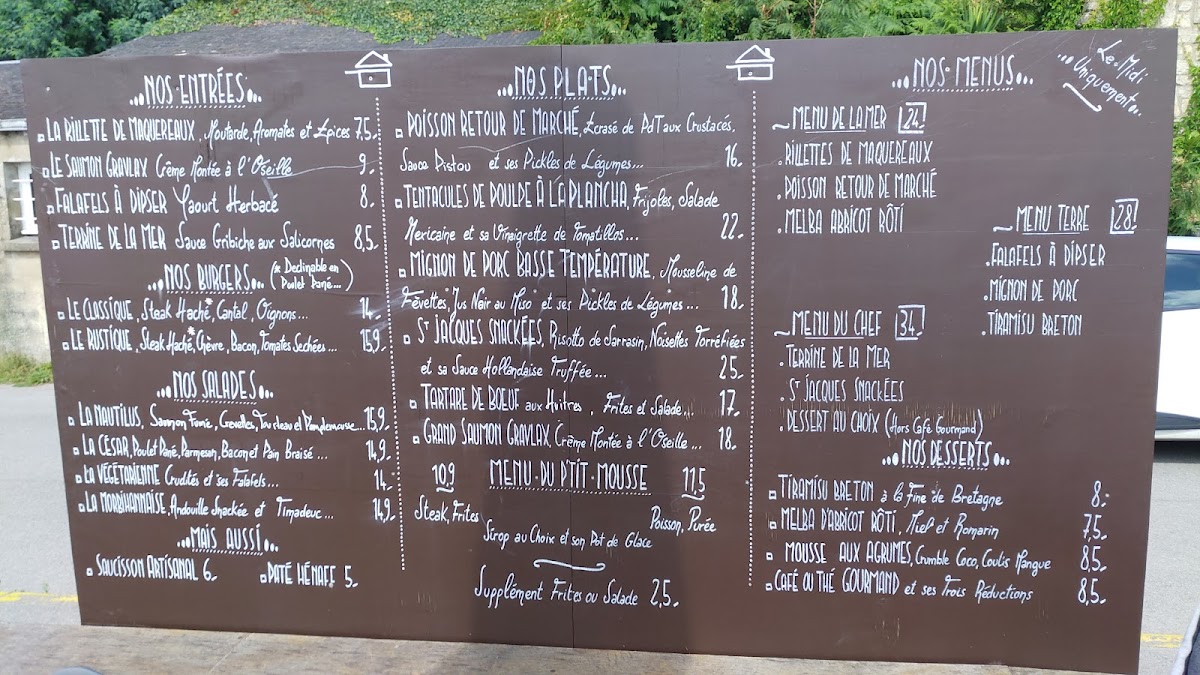 NOS ENTRÉES
LA RILLETTE DE MAQUEREAUX, Moutarde, Aromates et Epices 7,5.
LE SAUMON GRAVLAX Crème Montée à l'Oseille 9.
FALAFELS À DIPSER Yaourt Herbacé 8.
TERRINE DE LA MER Sauce Gribiche aux Salicornes 8,5.
NOS BURGERS (* Declinable en Poulet Pané...)
LE CLASSIQUE, Steak Haché*, Cantal, Oignons... 14.
LE RUSTIQUE, Steak Haché*, Chèvre, Bacon, Tomates Sechées... 15,9.
NOS SALADES
LA NAUTILUS, Saumon Fumé, Crevettes, Tourteau et Pamplemousse... 15,9.
LA CÉSAR, Poulet Pané, Parmesan, Bacon et Pain Braisé... 14,9.
LA VÉGÉTARIENNE Crudités et ses Falafels... 14.
LA MORBIHANNAISE, Andouille Snackée et Timadeuc... 14,9.
MAIS AUSSI
SAUCISSON ARTISANAL 6. PATÉ HÉNAFF 5.
NOS PLATS
POISSON RETOUR DE MARCHÉ, Ecrasé de PdT aux Crustacés,
Sauce Pistou et ses Pickles de Légumes... 16.
TENTACULES DE POULPE À LA PLANCHA, Frijoles, Salade
Mexicaine et sa Vinaigrette de Tomatillos... 22.
MIGNON DE PORC BASSE TEMPÉRATURE, Mousseline de
Fèvettes, Jus Noir au Miso et ses Pickles de Légumes... 18.
ST JACQUES SNACKÉES, Risotto de Sarrasin, Noisettes Torréfiées
et sa Sauce Hollandaise Truffée... 25.
TARTARE DE BOEUF aux Huitres, Frites et Salade... 17.
GRAND SAUMON GRAVLAX, Crème Montée à l'Oseille... 18.
10,9 MENU DU P'TIT MOUSSE 11,5
Steak, Frites Poisson, Purée
Sirop au Choix et son Pot de Glace
Supplément Frites ou Salade 2,5.
NOS MENUS
Le Midi
Uniquement...
MENU DE LA MER 24.
RILLETTES DE MAQUEREAUX
POISSON RETOUR DE MARCHÉ
MELBA ABRICOT RÔTI
MENU TERRE 28.
FALAFELS À DIPSER
MIGNON DE PORC
TIRAMISU BRETON
MENU DU CHEF 34.
TERRINE DE LA MER
ST JACQUES SNACKÉES
DESSERT AU CHOIX (Hors Café Gourmand)
NOS DESSERTS
TIRAMISU BRETON à la Fine de Bretagne 8.
MELBA D'ABRICOT RÔTI, Miel et Romarin 7,5.
MOUSSE AUX AGRUMES, Crumble Coco, Coulis Mangue 8,5.
CAFÉ OU THÉ GOURMAND et ses Trois Réductions 8,5.